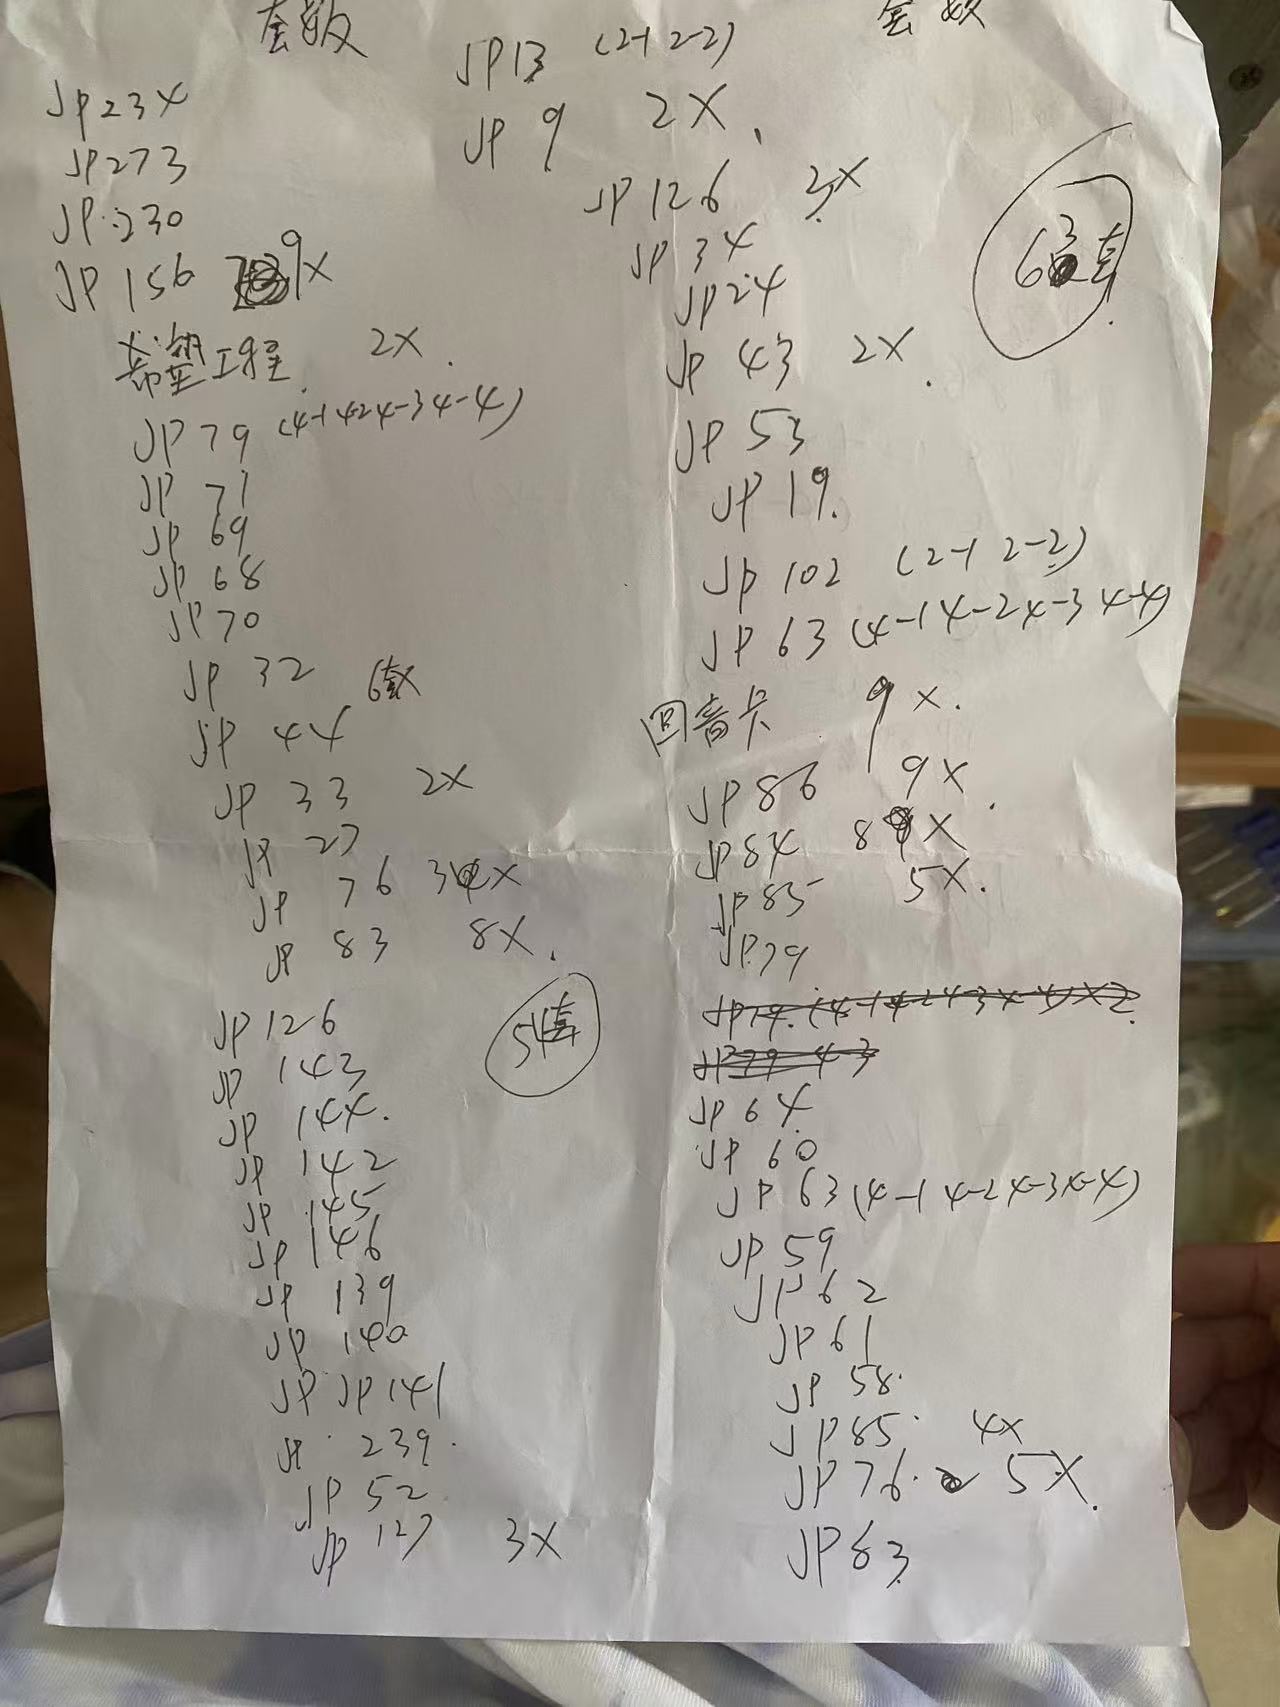 套数
JP234
JP273
JP230
JP 156 9X
希望工程 2X.
JP79 (4-1 4-2 4-3 4-4)
JP 71
JP 69
JP 68
JP 70
JP 32 6套
JP 44
JP 33 2X
JP 27
JP 76 3X
JP 83 8X.
JP 126
JP 143
JP 144.
JP 142
JP 145
JP 146
JP 139
JP 140
JP JP 141
JP 239.
JP 52
JP 127 3X
54套
套数
JP13 (2-1 2-2)
JP 9 2X.
JP 126 3X
JP 34
JP 24
JP 43 2X.
JP 53
JP 19.
JP 102 (2-1 2-2)
JP 63 (4-1 4-2 4-3 4-4)
回音卡 9X.
JP86 9X.
JP84 8X
JP85 5X.
JP79
JP 64
JP 60
JP 63 (4-1 4-2 4-3 4-4)
JP 59
JP 62
JP 61
JP 58.
JP 85. 4X
JP 76. 5X.
JP 83
63套.